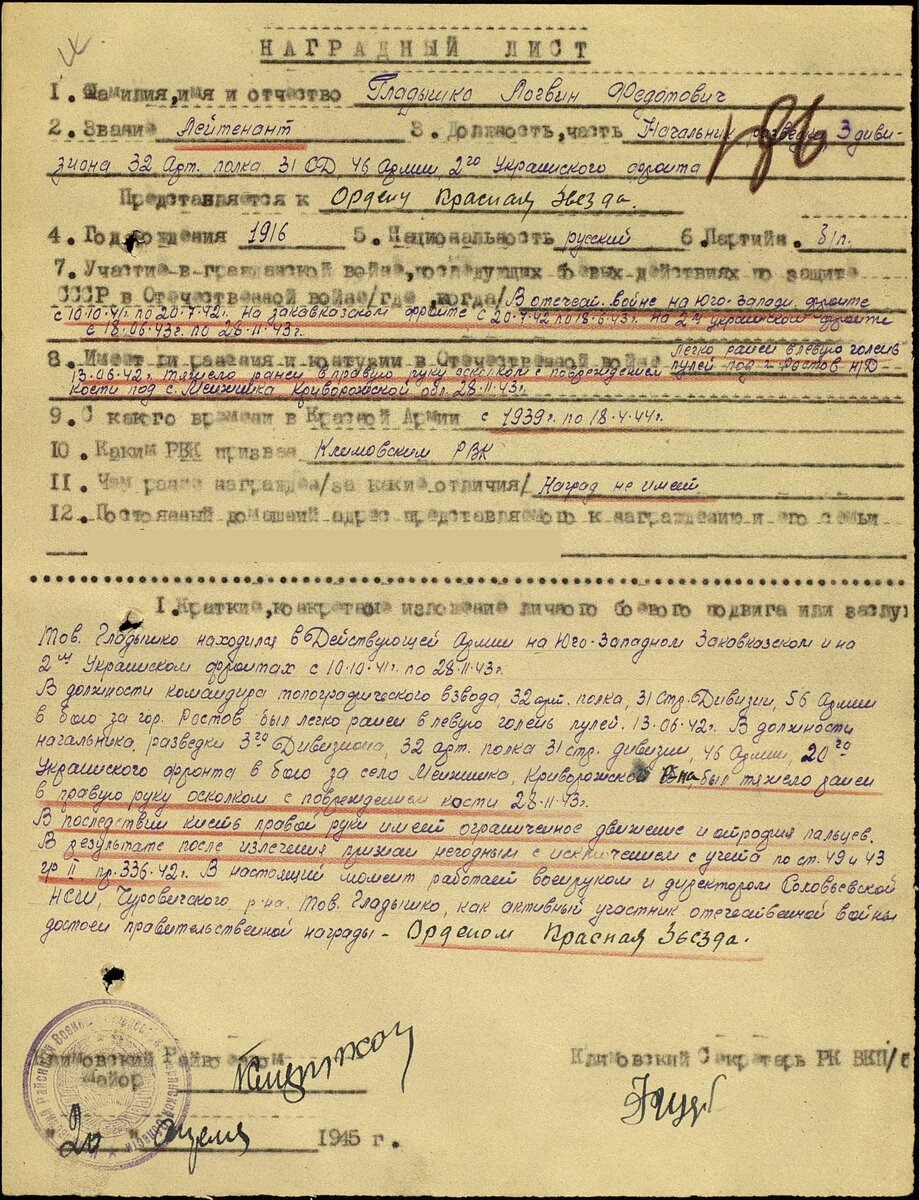 НАГРАДНЫЙ ЛИСТ
1. Фамилия, имя и отчество Гладышко Логвин Федотович
2. Звание Лейтенант 3. Должность, часть Начальник разведки 3 диви-
186
зиона 32 Арт. полка, 31 СД, 46 Армии, 2го Украинского фронта
Представляется к Ордену Красная Звезда.
4. Год рождения 1916 5. Национальность русский 6. Партийн. б/п.
7. Участие в гражданской войне, последующих боевых действиях по защите
СССР в Отечественной войне/где, когда/ В отечеств. войне на Юго-Запади. фронте
с 10-10-41г. по 20-7-42г. на закавказском фронте с 20-7-42 по 18-6-43г. на 2м украинском фронте
с 18.06.43г. по 28-11-43г.
8. Имеет ли ранения и контузии в Отечественной войне Легко ранен в левую голень
пулей под г. Ростов Н/Д
13.06.42г. тяжело ранен в правую руку осколком с повреждением
кости под с. Меихишка Криворожской обл. 28-11-43г.
9. С какого времени в Красной Армии с 1939г. по 18.4.44г.
10. Каким РВК призван Климовским РВК
11. Чем ранее награжден/за какие отличия/ Наград не имеет.
12. Постоянный домашний адрес представляемого к награждению и его семьи
I. Краткие, конкретное изложение личного боевого подвига или заслуг
Тов. Гладышко находился в Действующей Армии на Юго-Западном Закавказском и на
2ом Украинском фронтах с 10.10-41г. по 28.11.43г.
В должности командира топографического взвода, 32 арт. полка, 31 Стр. Дивизии, 56 Армии
в бою за гор. Ростов был легко ранен в левую голень пулей. 13.06.42г. В должности
начальника разведки 3го Дивизиона, 32 арт. полка 31 стр. дивизии, 46 Армии, 2ого
Украинского фронта в бою за село Меихишка, Криворожской был тяжело ранен
в правую руку осколком с повреждением кости 28-11-43г.
В последствии кисть правой руки имеет ограниченное движение и атрофия пальцев.
В результате после излечения признан негодным с исключением с учета по ст. 49 и 43
гр II пр. 336-42г. В настоящий момент работает военруком и директором Соловьевской
НСШ, Чуровичского р-на. Тов. Гладышко, как активный участник отечественной войны
достоен правительственной награды - Орденом Красная Звезда.
Климовский Райвоенком
Майор
Климовский Секретарь РК ВКП/б
20 апреля 1945 г.